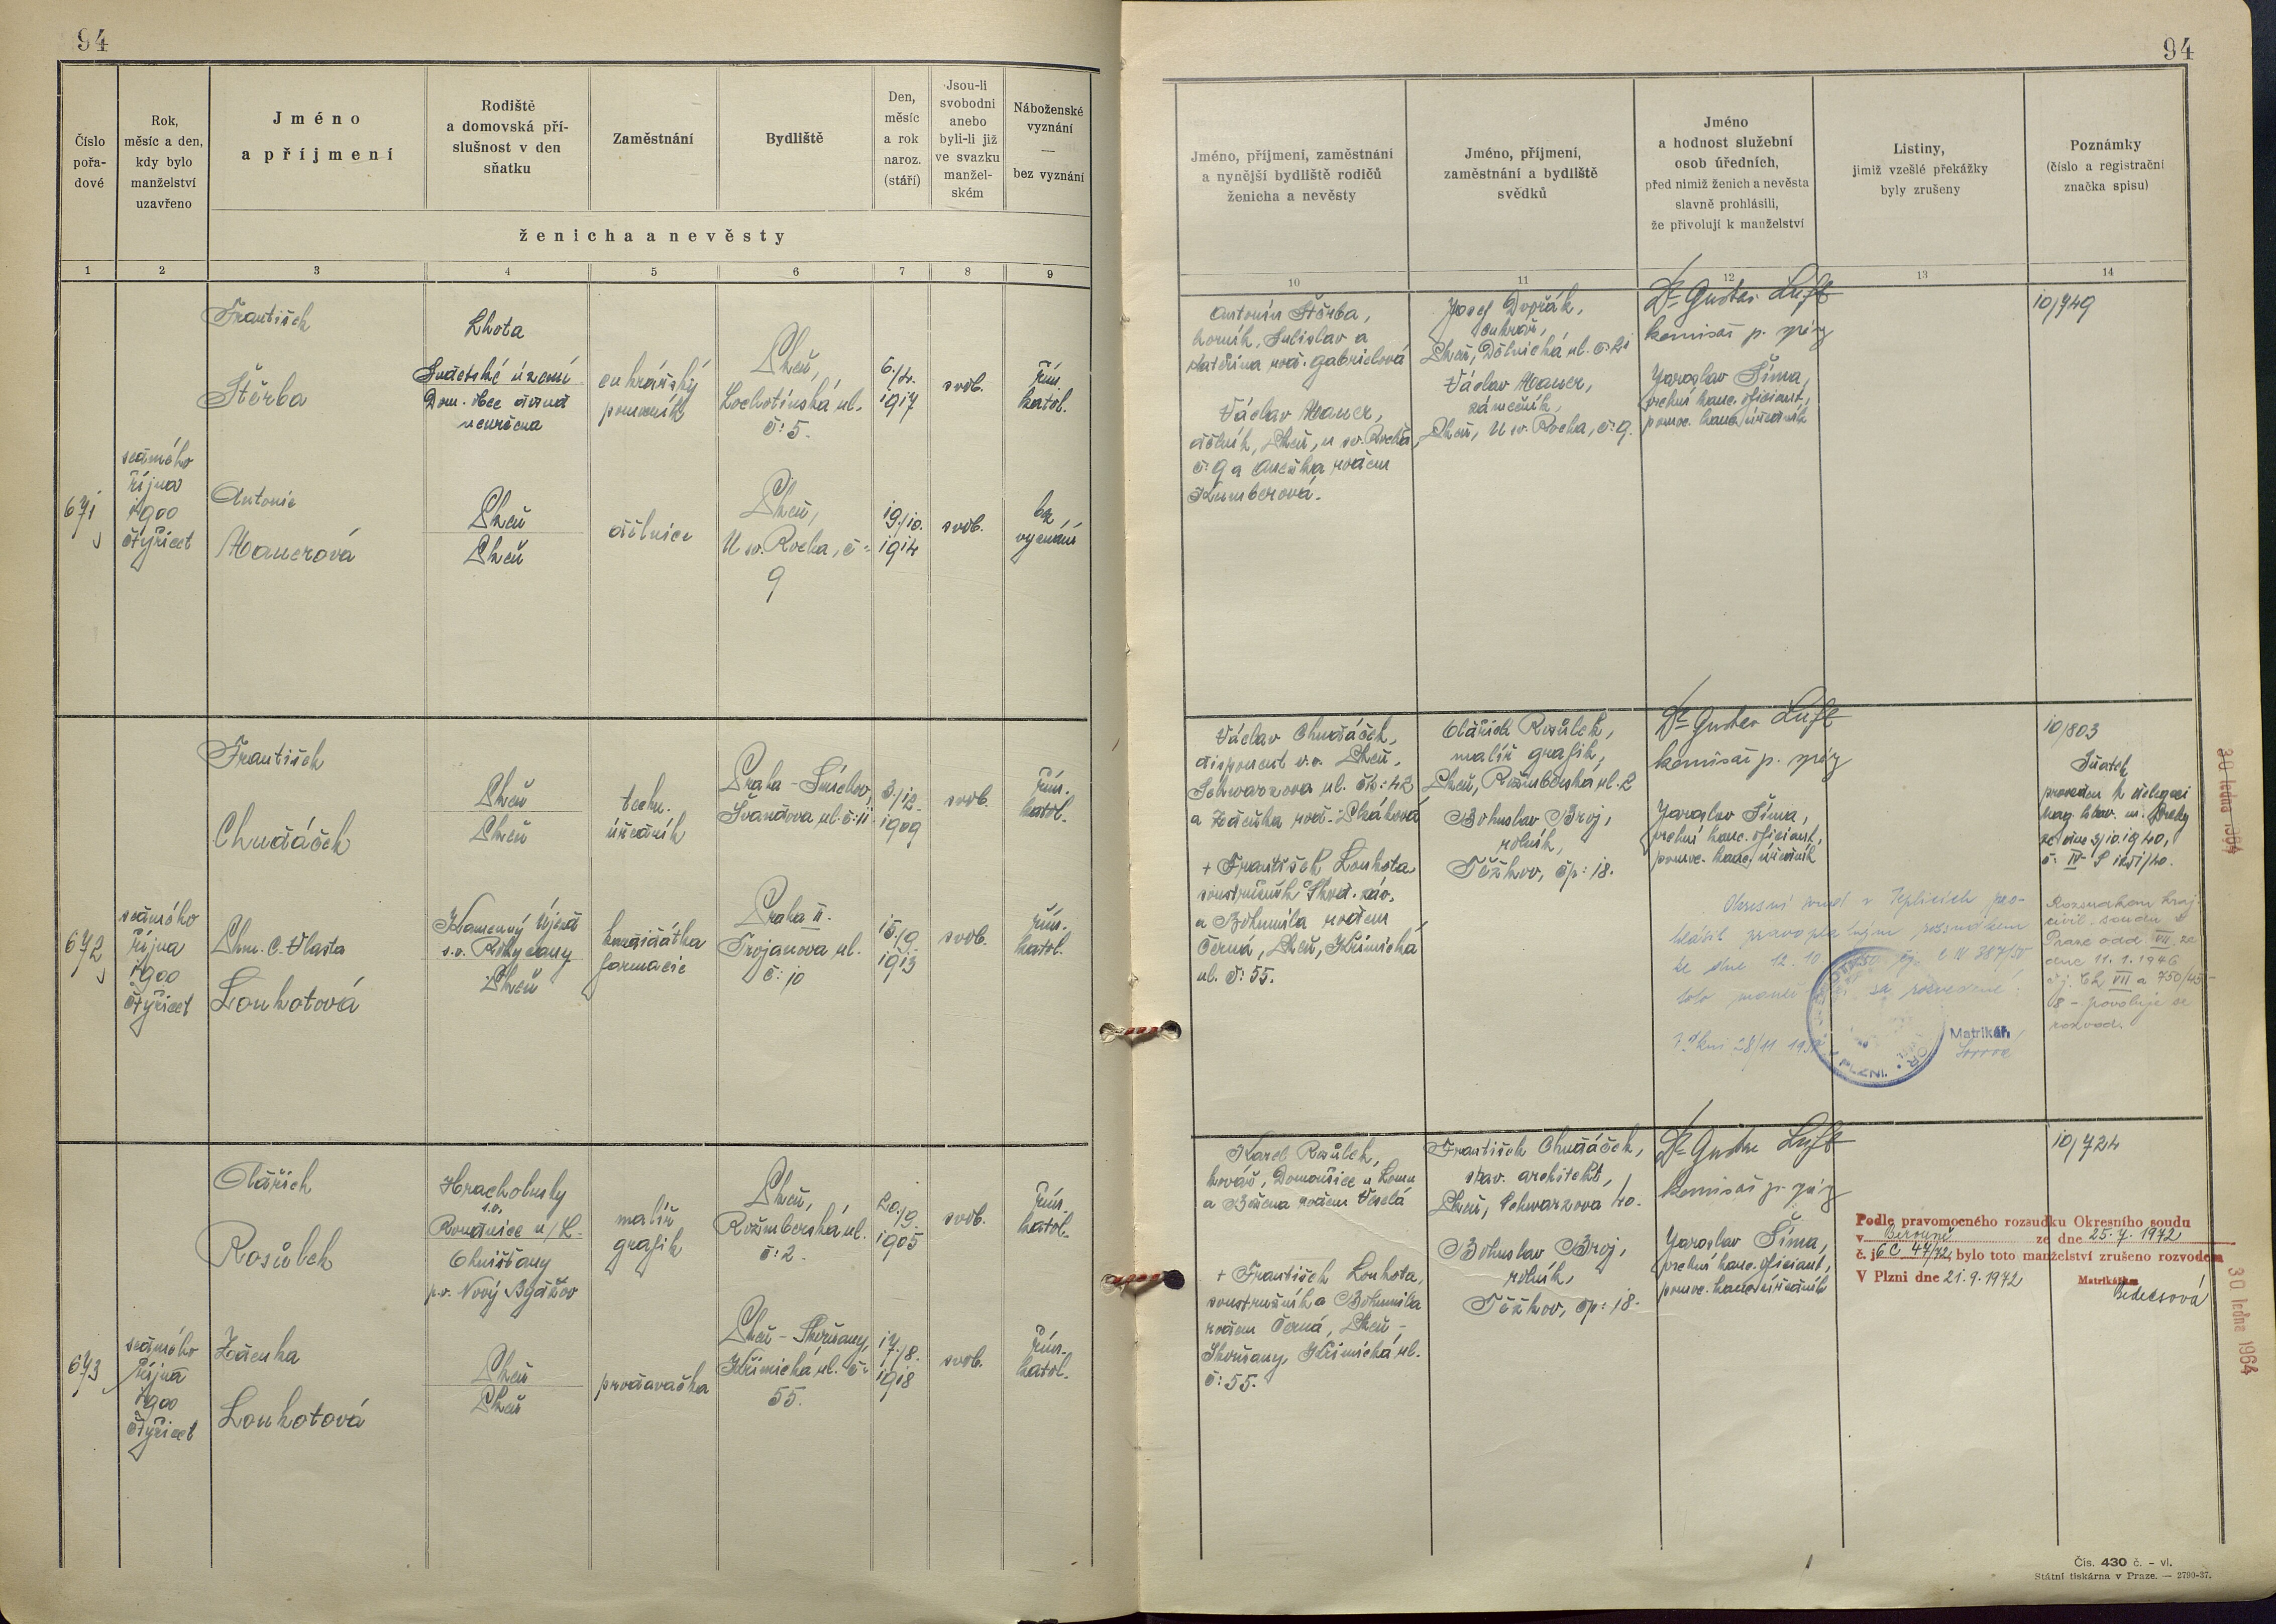 94
94
Číslo
pořa-
dové
Rok,
měsíc a den,
kdy bylo
manželství
uzavřeno
Jméno
a příjmení
Rodiště
a domovská pří-
slušnost v den
sňatku
Zaměstnání
Bydliště
Den,
měsíc
a rok
naroz.
(stáří)
Jsou-li
svobodni
anebo
byli-li již
ve svazku
manžel-
ském
Náboženské
vyznání
—
bez vyznání
ženicha a nevěsty
1 2 3 4 5 6 7 8 9
Jméno, příjmení, zaměstnání
a nynější bydliště rodičů
ženicha a nevěsty
Jméno, příjmení,
zaměstnání a bydliště
svědků
Jméno
a hodnost služební
osob úředních,
před nimiž ženich a nevěsta
slavně prohlásili,
že přivolují k manželství
Listiny,
jimiž vzešlé překážky
byly zrušeny
Poznámky
(číslo a registrační
značka spisu)
10 11 12 13 14
671
sedmého
října
1900
čtyřicet
František
Štěrba
Lhota
Sudetské území
Dom. obec dosud
neurčena
cukrářský
pomocník
Plzeň,
Lochotínská ul.
č: 5.
6./4.
1917
svob.
řím.
katol.
Antonie
Mauerová
Plzeň
Plzeň
dělnice
Plzeň,
U sv. Rocha, č:
9
19./10.
1914
svob.
bez
vyznání
Antonín Štěrba,
horník, Sulislav a
Kateřina roz. Gabrielová
Václav Mauer,
dělník, Plzeň, u sv. Rocha,
č: 9 a Anežka rozen
Kumberová.
Josef Dvořák,
cukrář,
Plzeň, Dělnická ul. č: 21
Václav Mauer,
zámečník,
Plzeň, U sv. Rocha, č: 9.
Dr Gustav Luft
komisař p. správy
Jaroslav Šíma,
vrchní kanc. oficiant,
pomoc. kanc. úředník
10/749
672
sedmého
října
1900
čtyřicet
František
Chudáček
Plzeň
Plzeň
techn.
úředník
Praha – Smíchov,
Švandova ul. č: 11.
3./12.
1909
svob.
řím.
katol.
Phm. C. Vlasta
Loukotová
Kamenný Újezd
s.o. Rokycany
Plzeň
kandidátka
farmacie
Praha II.
Trojanova ul.
č: 10
15./9.
1913
svob.
řím.
katol.
Václav Chudáček,
disponent v.v. Plzeň,
Schwarzova ul. čp: 42
a Zdeňka roz. Ptáková
+ František Loukota
soustružník Škod. záv.
a Bohumila rozen
Černá, Plzeň, Křimická
ul. č: 55.
Oldřich Rosůlek,
malíř grafik,
Plzeň, Rožmberská ul. 2
Bohuslav Broj,
rolník,
Těškov, čp: 18.
Dr Gustav Luft
komisař p. správy
Jaroslav Šíma,
vrchní kanc. oficiant,
pomoc. kanc. úředník
10/803
Sňatek
proveden k delegaci
mag. hlav. m. Prahy
ze dne 3/10. 1940,
Okresní soud v Teplicích pro-
hlásil pravoplatným rozsudkem
ze dne 12. 10.
toto manželství za rozvedené.
Matrikář:
PLZNI.
Rozsudkem kraj.
civil. soudu v
Praze odd VII. ze
dne 11. 1. 1946
č.j. Ck VII a 750/45
8 – povoluje se
rozvod.
30 ledna 1964
673
sedmého
října
1900
čtyřicet
Oldřich
Rosůlek
Hracholusky
s.o.
Roudnice n/L.
Ohnišťany
p.o. Nový Bydžov
malíř
grafik
Plzeň,
Rožmberská ul.
č: 2.
20./9.
1905
svob.
řím.
katol.
Zdenka
Loukotová
Plzeň
Plzeň
prodavačka
Plzeň – Skvrňany,
Křimická ul. č:
55.
17./8.
1918
svob.
řím.
katol.
Karel Rosůlek,
kovář, Domoušice u Loun
a Božena rozen Veselá
+ František Loukota,
soustružník a Bohumila
rozen Černá, Plzeň –
Skvrňany, Křimická ul.
č: 55.
František Chudáček,
stav. architekt,
Plzeň, Schwarzova 40.
Bohuslav Broj,
rolník,
Těškov, čp: 18.
Dr Gustav Luft
komisař p. správy
Jaroslav Šíma,
vrchní kanc. oficiant,
pomoc. kanc. úředník
10/724
Podle pravomocného rozsudku Okresního soudu
v Berouně ze dne 25. 7. 1972
č. j. 6 C 47/72, bylo toto manželství zrušeno rozvodem
V Plzni dne 21. 9. 1972
Matrikářka
30 ledna 1964
Čís. 430 č. – vl.
Státní tiskárna v Praze. — 2790-37.